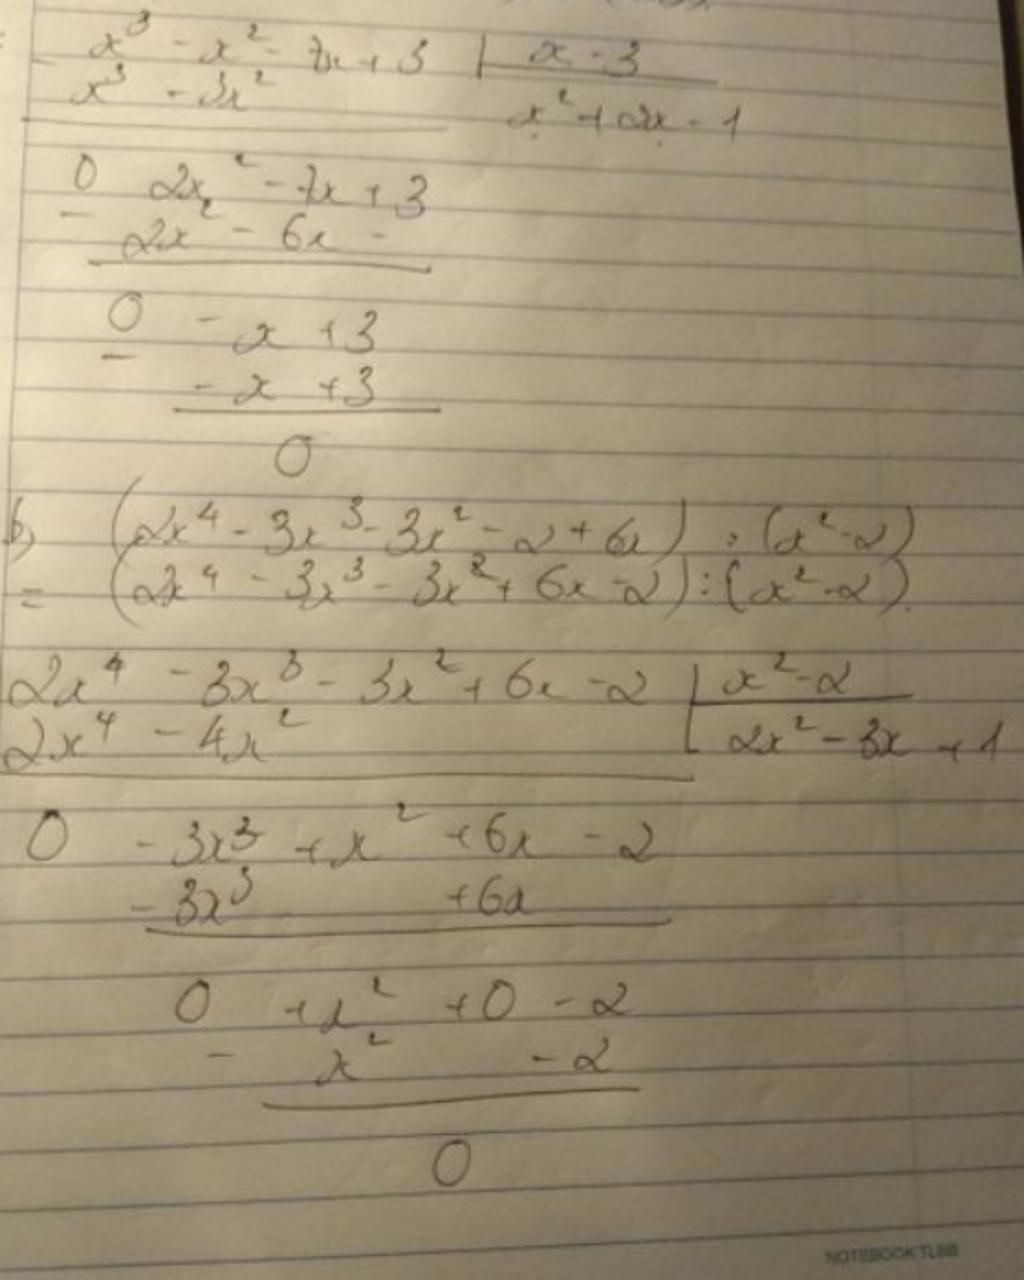 x³ - x² - 7x + 3 | x - 3
x³ - 3x² x² + 2x - 1
0 2x² - 7x + 3
- 2x² - 6x -
0 - x + 3
- - x + 3
0
b) (2x⁴ - 3x³ - 3x² - 2 + 6x) : (x² - 2)
= (2x⁴ - 3x³ - 3x² + 6x - 2) : (x² - 2)
2x⁴ - 3x³ - 3x² + 6x - 2 | x² - 2
2x⁴ - 4x² 2x² - 3x + 1
0 - 3x³ + x² + 6x - 2
- 3x³ + 6x
0 + x² + 0 - 2
- x² - 2
0
NOTEBOOK TLBB